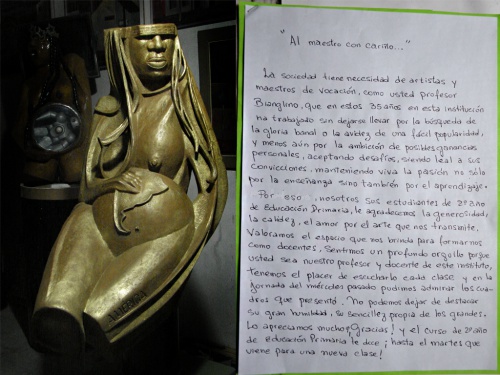 "Al maestro con cariño..."
La sociedad tiene necesidad de artistas y
maestros de vocación, como usted profesor
Bianglino, que en estos 35 años en esta institución
ha trabajado sin dejarse llevar por la búsqueda de
la gloria banal o la avidez de una fácil popularidad,
y menos aún por la ambición de posibles ganancias
personales, aceptando desafíos, siendo leal a sus
convicciones, manteniendo viva la pasión no sólo
por la enseñanza sino también por el aprendizaje.
Por eso, nosotros sus estudiantes de 2º Año
de Educación Primaria, le agradecemos la generosidad,
la calidez, el amor por el arte que nos transmite.
Valoramos el espacio que nos brinda para formarnos
como docentes, sentimos un profundo orgullo porque
usted sea nuestro profesor y docente de este instituto,
tenemos el placer de escucharlo cada clase y en la
jornada del miércoles pasado pudimos admirar los cua-
dros que presentó. No podemos dejar de destacar
su gran humildad, su sencillez propia de los grandes.
Lo apreciamos mucho ¡Gracias! y el curso de 2º año
de Educación Primaria le dice ¡hasta el martes que
viene para una nueva clase!